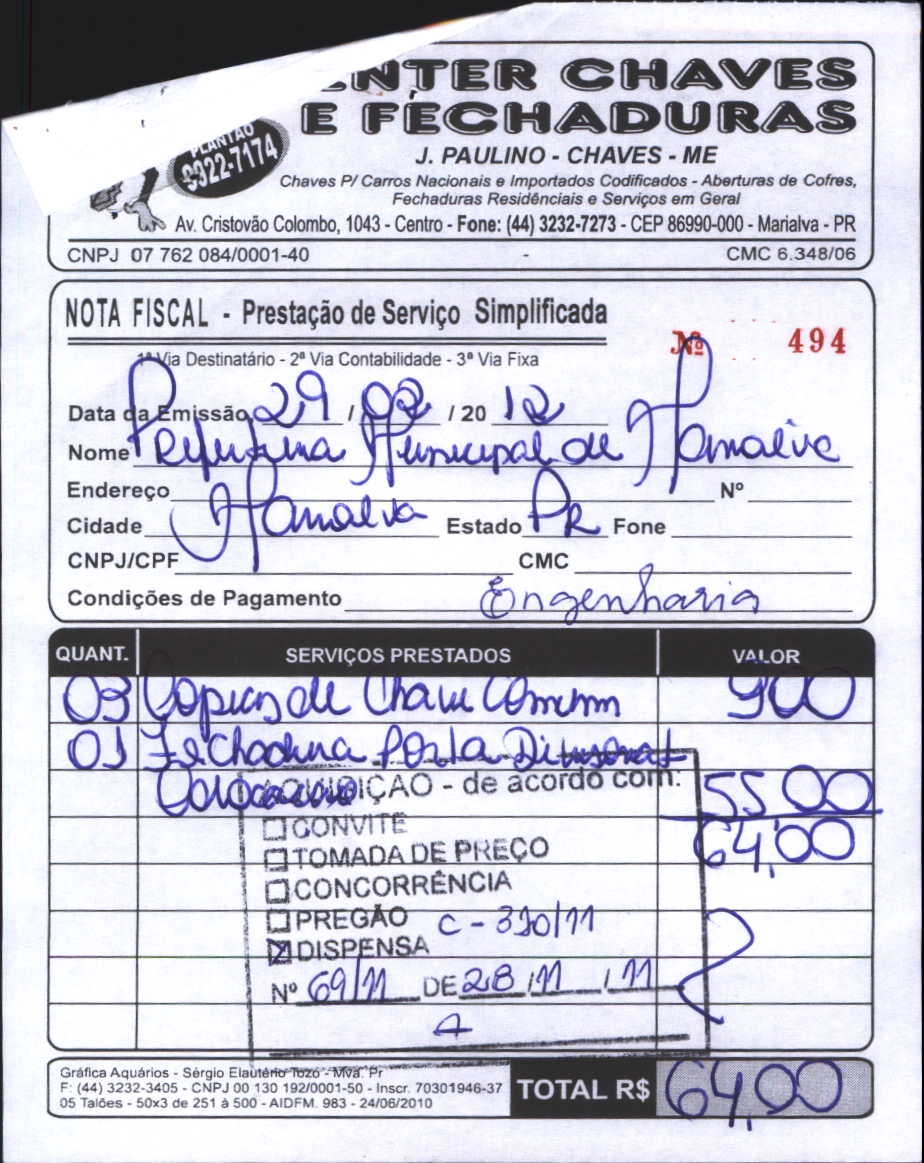 ENTER CHAVES
E FECHADURAS
PLANTÃO
9922-7174
J. PAULINO - CHAVES - ME
Chaves P/ Carros Nacionais e Importados Codificados - Aberturas de Cofres,
Fechaduras Residênciais e Serviços em Geral
Av. Cristovão Colombo, 1043 - Centro - Fone: (44) 3232-7273 - CEP 86990-000 - Marialva - PR
CNPJ 07 762 084/0001-40 CMC 6.348/06
NOTA FISCAL - Prestação de Serviço Simplificada
Nº 494
1ª Via Destinatário - 2ª Via Contabilidade - 3ª Via Fixa
Data da Emissão 29 / 02 / 20 12
Nome Prefeitura Municipal de Marialva
Endereço Nº
Cidade Marialva Estado PR Fone
CNPJ/CPF CMC
Condições de Pagamento Engenharia
QUANT. SERVIÇOS PRESTADOS VALOR
03 Copias de Chave Comum 9 00
01 Fechadura Porta Divisoria
55 00
- de acordo com:
CONVITE
64,00
TOMADA DE PREÇO
CONCORRÊNCIA
PREGÃO C - 310/11
DISPENSA
Nº 69/11 DE 28 /11 / 11
Gráfica Aquários - Sérgio Elautério Tozo - Mva. Pr
F: (44) 3232-3405 - CNPJ 00 130 192/0001-50 - Inscr. 70301946-37
05 Talões - 50x3 de 251 à 500 - AIDFM. 983 - 24/06/2010
TOTAL R$ 64,00